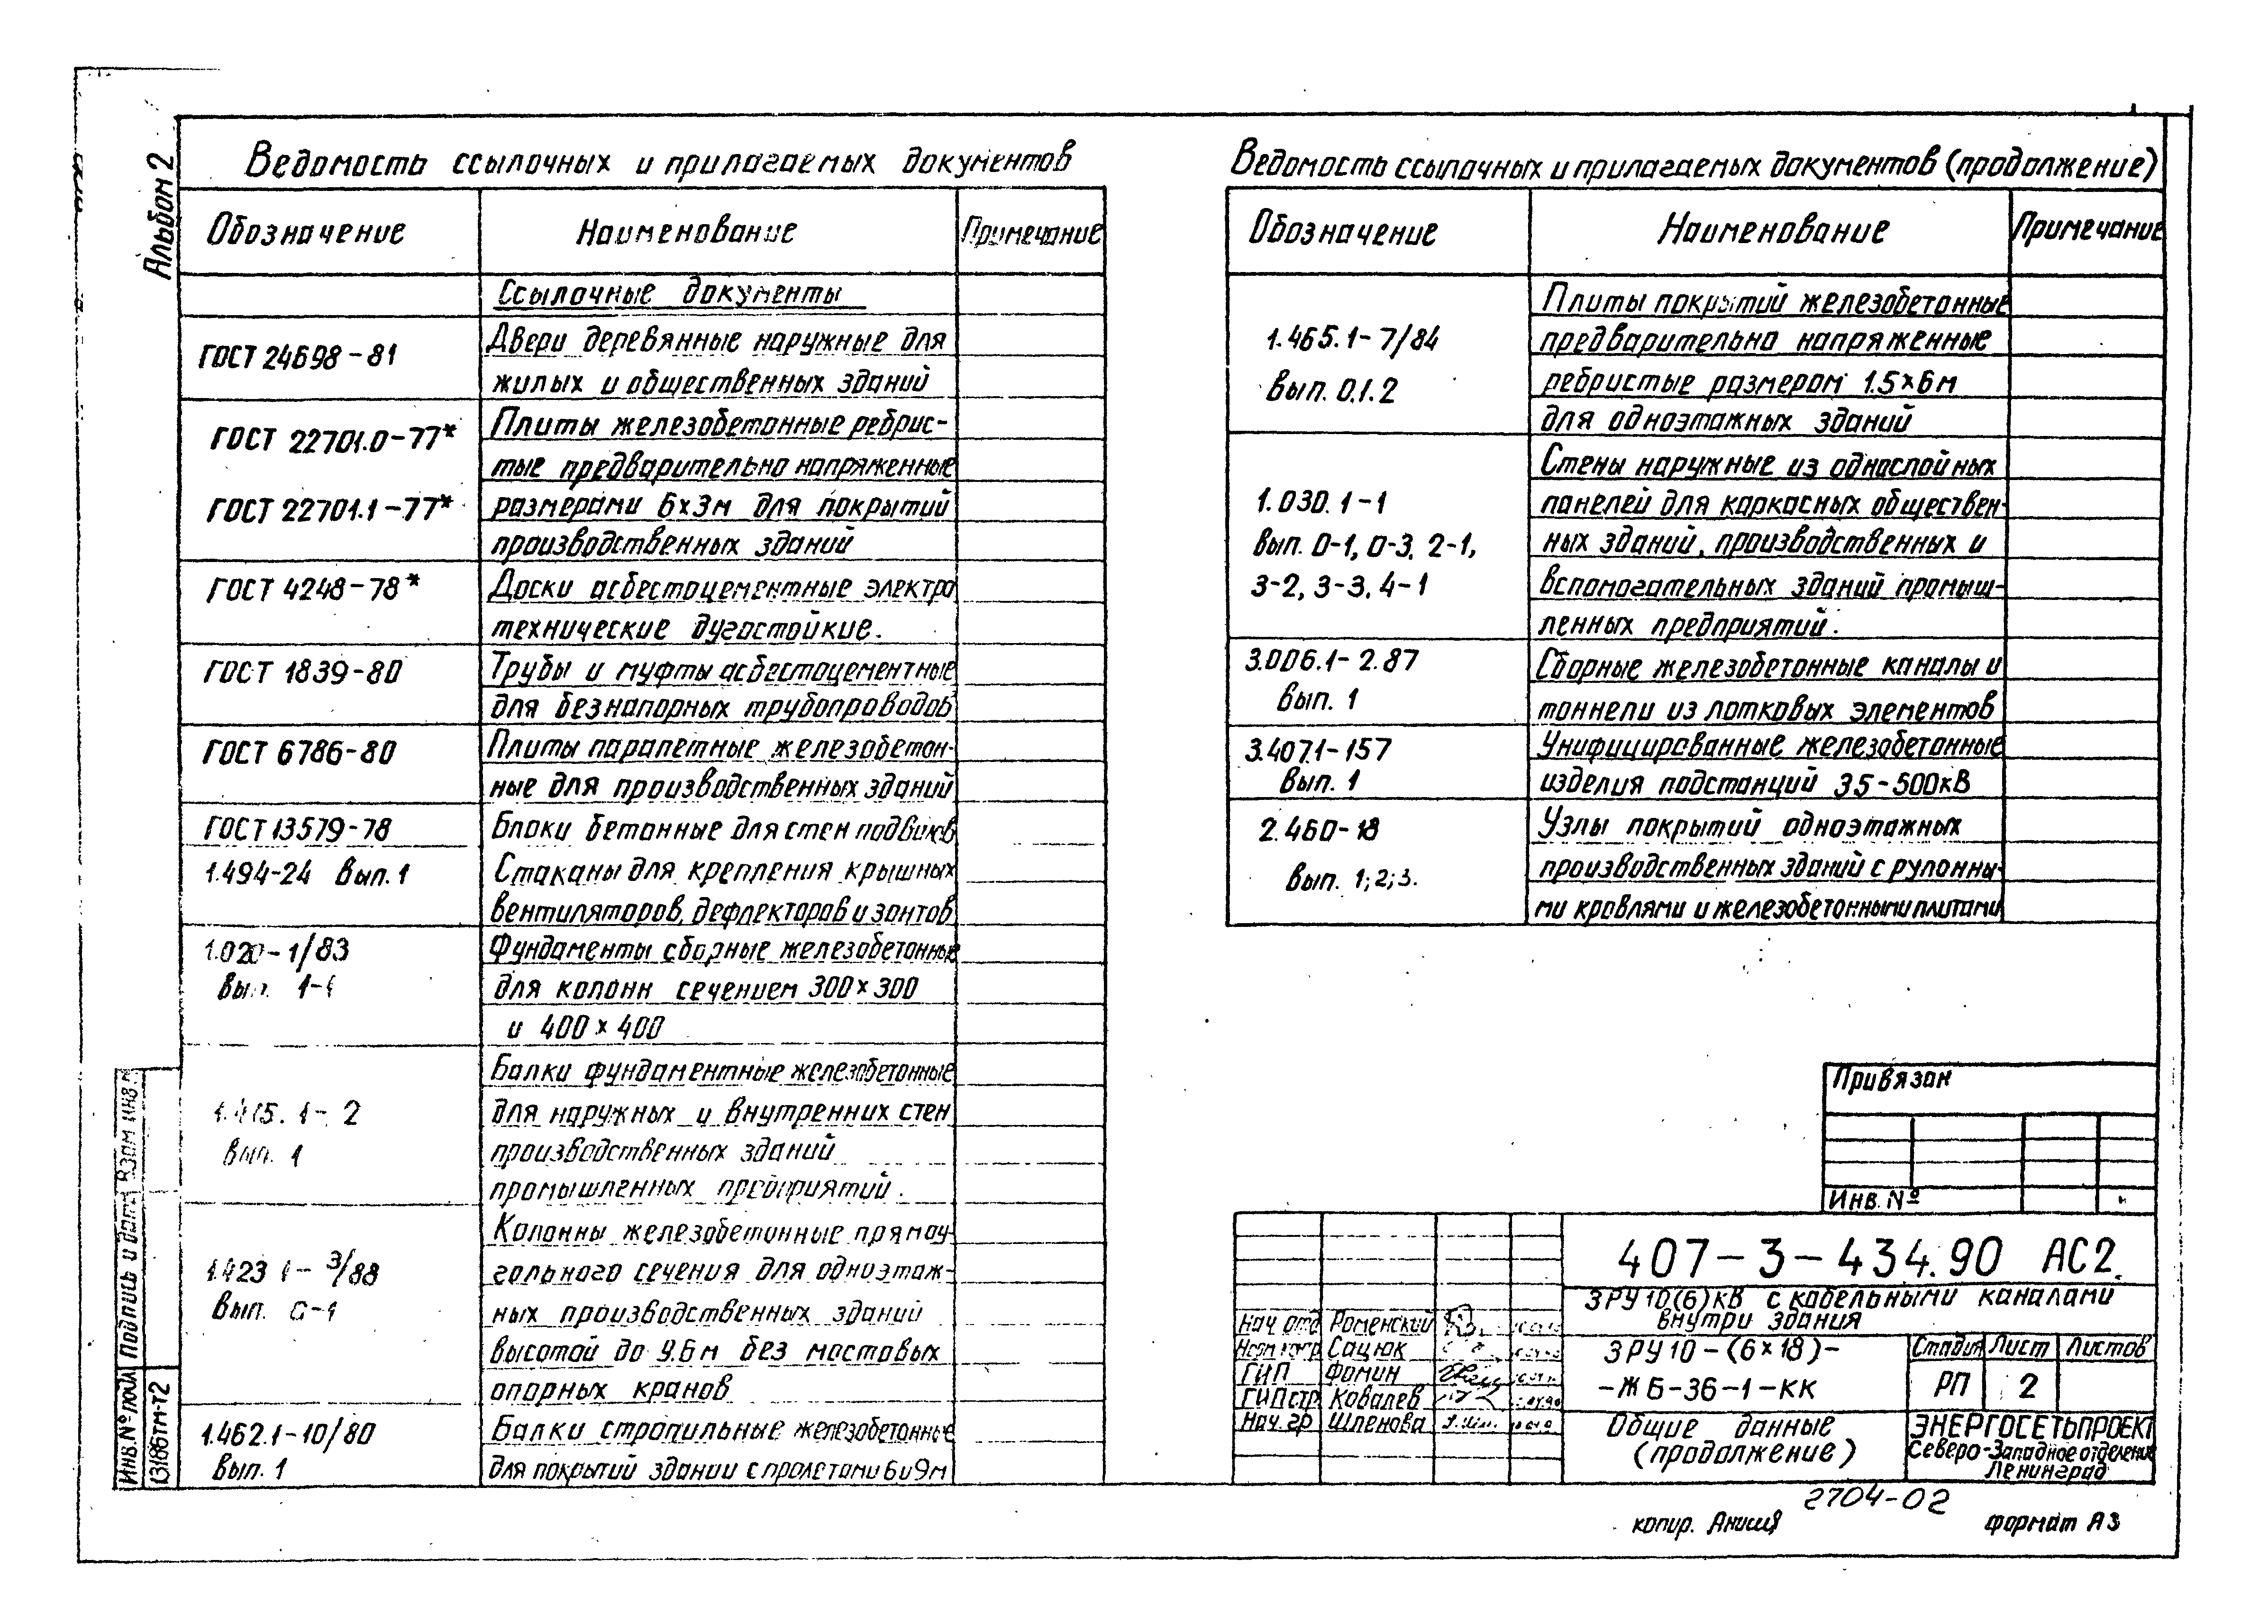 Альбом 2
Ведомость ссылочных и прилагаемых документов
Обозначение Наименование Примечание
Ссылочные документы
ГОСТ 24698-81 Двери деревянные наружные для
жилых и общественных зданий
ГОСТ 22701.0-77* Плиты железобетонные ребрис-
тые предварительно напряженные
ГОСТ 22701.1-77* размерами 6х3м для покрытий
производственных зданий
ГОСТ 4248-78* Доски асбестоцементные электро
технические дугостойкие.
ГОСТ 1839-80 Трубы и муфты асбестоцементные
для безнапорных трубопроводов
ГОСТ 6786-80 Плиты парапетные железобетон-
ные для производственных зданий
ГОСТ 13579-78 Блоки бетонные для стен подвалов
1.494-24 Вып. 1 Стаканы для крепления крышных
вентиляторов, дефлекторов и зонтов
1.020-1/83 Фундаменты сборные железобетонные
Вып. 1-1 для колонн сечением 300×300
и 400×400
Балки фундаментные железобетонные
1.415.1-2 для наружных и внутренних стен
Вып. 1 производственных зданий
промышленных предприятий.
Колонны железобетонные прямоу-
1.423.1-3/88 гольного сечения для одноэтаж-
Вып. 0-1 ных производственных зданий
высотой до 9.6м без мостовых
опорных кранов
1.462.1-10/80 Балки стропильные железобетонные
Вып. 1 для покрытий здании с пролетами 6и9м
Ведомость ссылочных и прилагаемых документов (продолжение)
Обозначение Наименование Примечание
Плиты покрытий железобетонные
1.465.1-7/84 предварительно напряженные
Вып. 0.1.2 ребристые размером 1.5×6м
для одноэтажных зданий
Стены наружные из однослойных
1.030.1-1 панелей для каркасных обществен-
Вып. 0-1, 0-3, 2-1, ных зданий, производственных и
3-2, 3-3, 4-1 вспомогательных зданий промыш-
ленных предприятий.
3.006.1-2.87 Сборные железобетонные каналы и
Вып. 1 тоннели из лотковых элементов
3.407.1-157 Унифицированные железобетонные
Вып. 1 изделия подстанций 35-500кВ
2.460-18 Узлы покрытий одноэтажных
Вып. 1;2;3. производственных зданий с рулонны-
ми кровлями и железобетонными плитами
Привязан
Инв. №
407-3-434.90 АС2
ЗРУ10(6)кВ с кабельными каналами
внутри здания
Нач отд Роменский
Норм контр Сацюк
ГИП Фомин
ГИПстр Ковалев
Нач. гр Шленова
ЗРУ10-(6×18)-
-ЖБ-36-1-КК
Стадия Лист Листов
РП 2
Общие данные
(продолжение)
ЭНЕРГОСЕТЬПРОЕКТ
Северо-Западное отделение
Ленинград
Инв. № подл Подпись и дата Взам инв.
13186тм-т2
2704-02
копир. формат А3